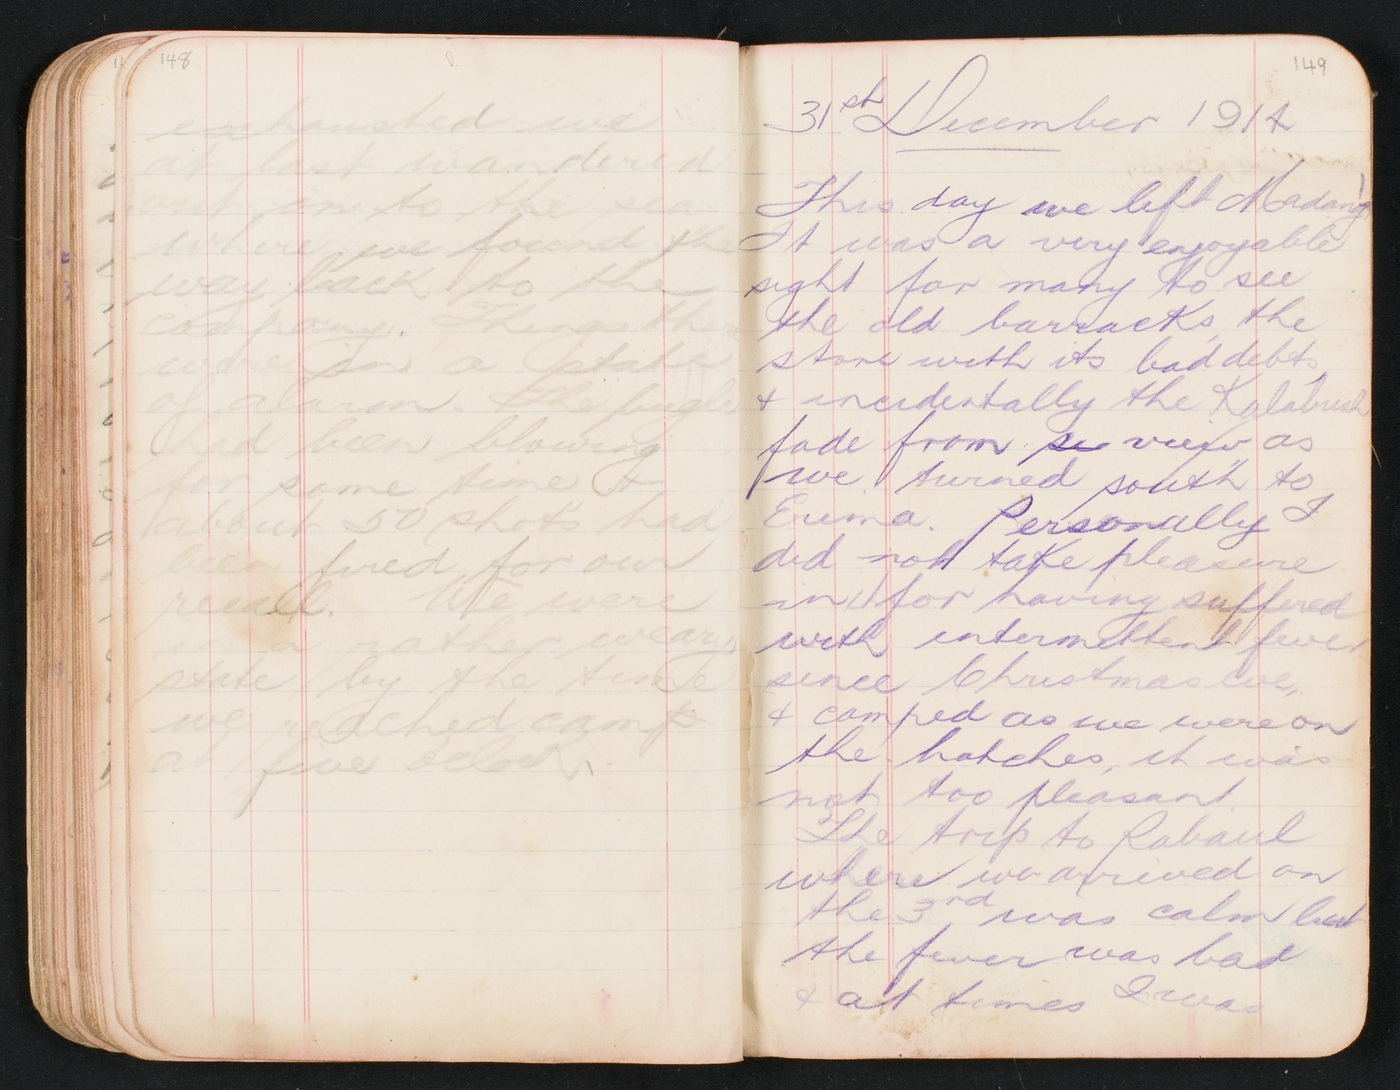 148
exhausted we
at last wandered
out on to the sea
where we found the
way back to the
company. Things there
were in a state
of alarm. The bugle
had been blowing
for some time &
about 50 shots had
been fired for our
recall. We were
in a rather weary
state by the time
we reached camp
at five o'clock.
149
31st December 1914
This day we left Madang
It was a very enjoyable
sight for many to see
the old barracks, the
store with its bad debts,
& incidentally the Kalabush
fade from view as
we turned south to
Erima. Personally I
did not take pleasure
in it for having suffered
with intermittent fever
since Christmas Eve,
& camped as we were on
the hatches, it was
not too pleasant.
The trip to Rabaul
where we arrived on
the 3rd was calm but
the fever was bad
& at times I was